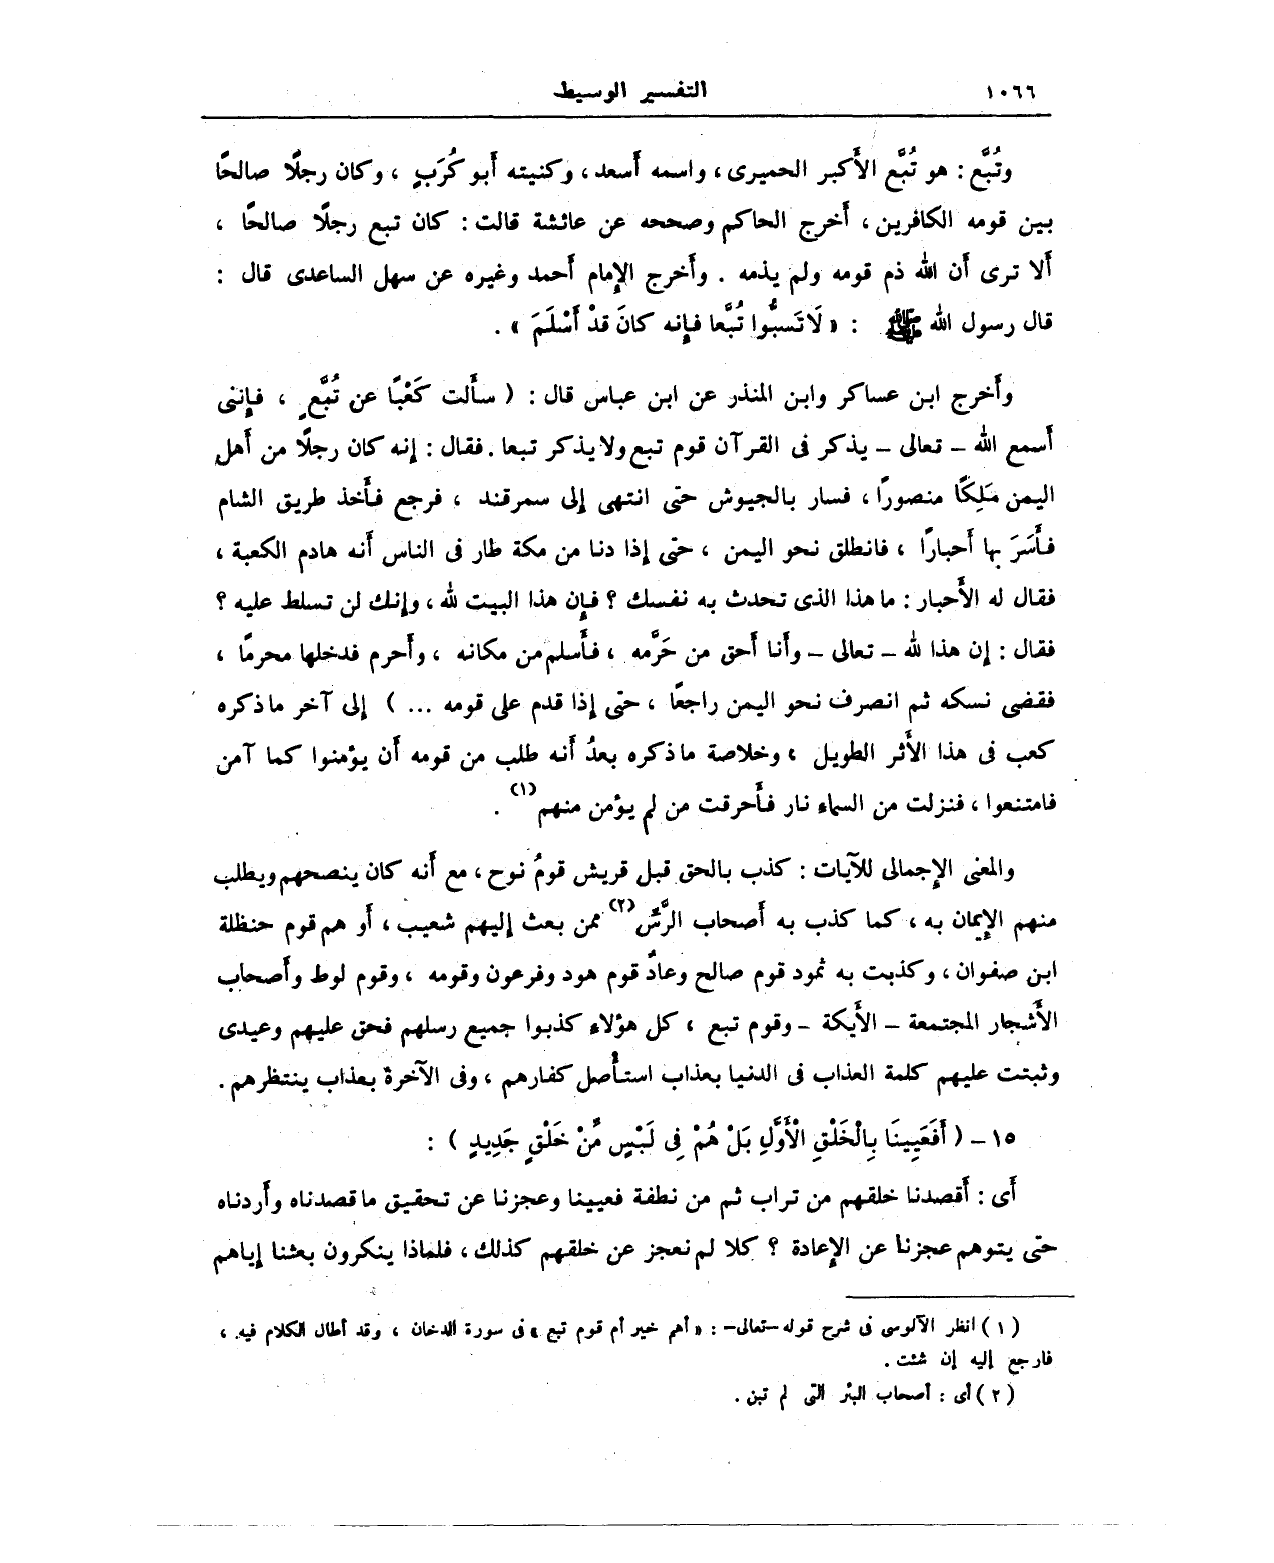 ١٠٦٦ التفسير الوسيط
وتُبَّع : هو تُبَّع الأَكبر الحميرى ، واسمه أَسعد ، وكنيته أَبو كُرَبٍ ، وكان رجلًا صالحًا
بين قومه الكافرين ، أَخرج الحاكم وصححه عن عائشة قالت : كان تبع رجلًا صالحًا ،
أَلا ترى أَن الله ذم قومه ولم يذمه . وأَخرج الإِمام أَحمد وغيره عن سهل الساعدى قال :
قال رسول الله ﷺ : « لَا تَسبُّوا تُبَّعا فإِنه كانَ قدْ أَسْلَمَ » .
وأَخرج ابن عساكر وابن المنذر عن ابن عباس قال : ( سأَلت كَعْبًا عن تُبَّعٍ ، فإِننى
أَسمع الله – تعالى – يذكر فى القرآن قوم تبع ولا يذكر تبعا . فقال : إِنه كان رجلًا من أَهل
اليمن مَلِكًا منصورًا ، فسار بالجيوش حتى انتهى إِلى سمرقند ، فرجع فأَخذ طريق الشام
فأَسَرَ بها أَحبارًا ، فانطلق نحو اليمن ، حتى إِذا دنا من مكة طار فى الناس أَنه هادم الكعبة ،
فقال له الأَحبار : ما هذا الذى تحدث به نفسك ؟ فإِن هذا البيت لله ، وإِنك لن تسلط عليه ؟
فقال : إِن هذا لله – تعالى – وأَنا أَحق من حَرَّمه ، فأَسلم من مكانه ، وأَحرم فدخلها محرمًا ،
فقضى نسكه ثم انصرف نحو اليمن راجعًا ، حتى إِذا قدم على قومه ... ) إِلى آخر ما ذكره
كعب فى هذا الأَثر الطويل ، وخلاصة ما ذكره بعدُ أَنه طلب من قومه أَن يؤمنوا كما آمن
فامتنعوا ، فنزلت من السماء نار فأَحرقت من لم يؤمن منهم (١) .
والمعنى الإِجمالى للآيات : كذب بالحق قبل قريش قومُ نوح ، مع أَنه كان ينصحهم ويطلب
منهم الإِيمان به ، كما كذب به أَصحاب الرَّسِّ (٢) ممن بعث إِليهم شعيب ، أَو هم قوم حنظلة
ابن صفوان ، وكذبت به ثمود قوم صالح وعادٌ قوم هود وفرعون وقومه ، وقوم لوط وأَصحاب
الأَشجار المجتمعة – الأَيكة – وقوم تبع ، كل هؤلاء كذبوا جميع رسلهم فحق عليهم وعيدى
وثبتت عليهم كلمة العذاب فى الدنيا بعذاب استأْصل كفارهم ، وفى الآخرة بعذاب ينتظرهم .
١٥ – ( أَفَعَيِينَا بِالْخَلْقِ الْأَوَّلِ بَلْ هُمْ فِى لَبْسٍ مِّنْ خَلْقٍ جَدِيدٍ ) :
أَى : أَقصدنا خلقهم من تراب ثم من نطفة فعيينا وعجزنا عن تحقيق ما قصدناه وأَردناه
حتى يتوهم عجزنا عن الإِعادة ؟ كلا لم نعجز عن خلقهم كذلك ، فلماذا ينكرون بعثنا إِياهم
( ١ ) انظر الآلوسى فى شرح قوله –تعالى– : « أهم خير أم قوم تبع » فى سورة الدخان ، وقد أطال الكلام فيه ،
فارجع إليه إن شئت .
( ٢ ) أى : أصحاب البئر التى لم تبن .